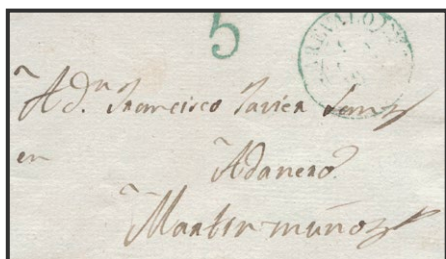 5
AREVALO
A Dn. Francisco Javier Sanz
en
Adanero.
Martin muñoz